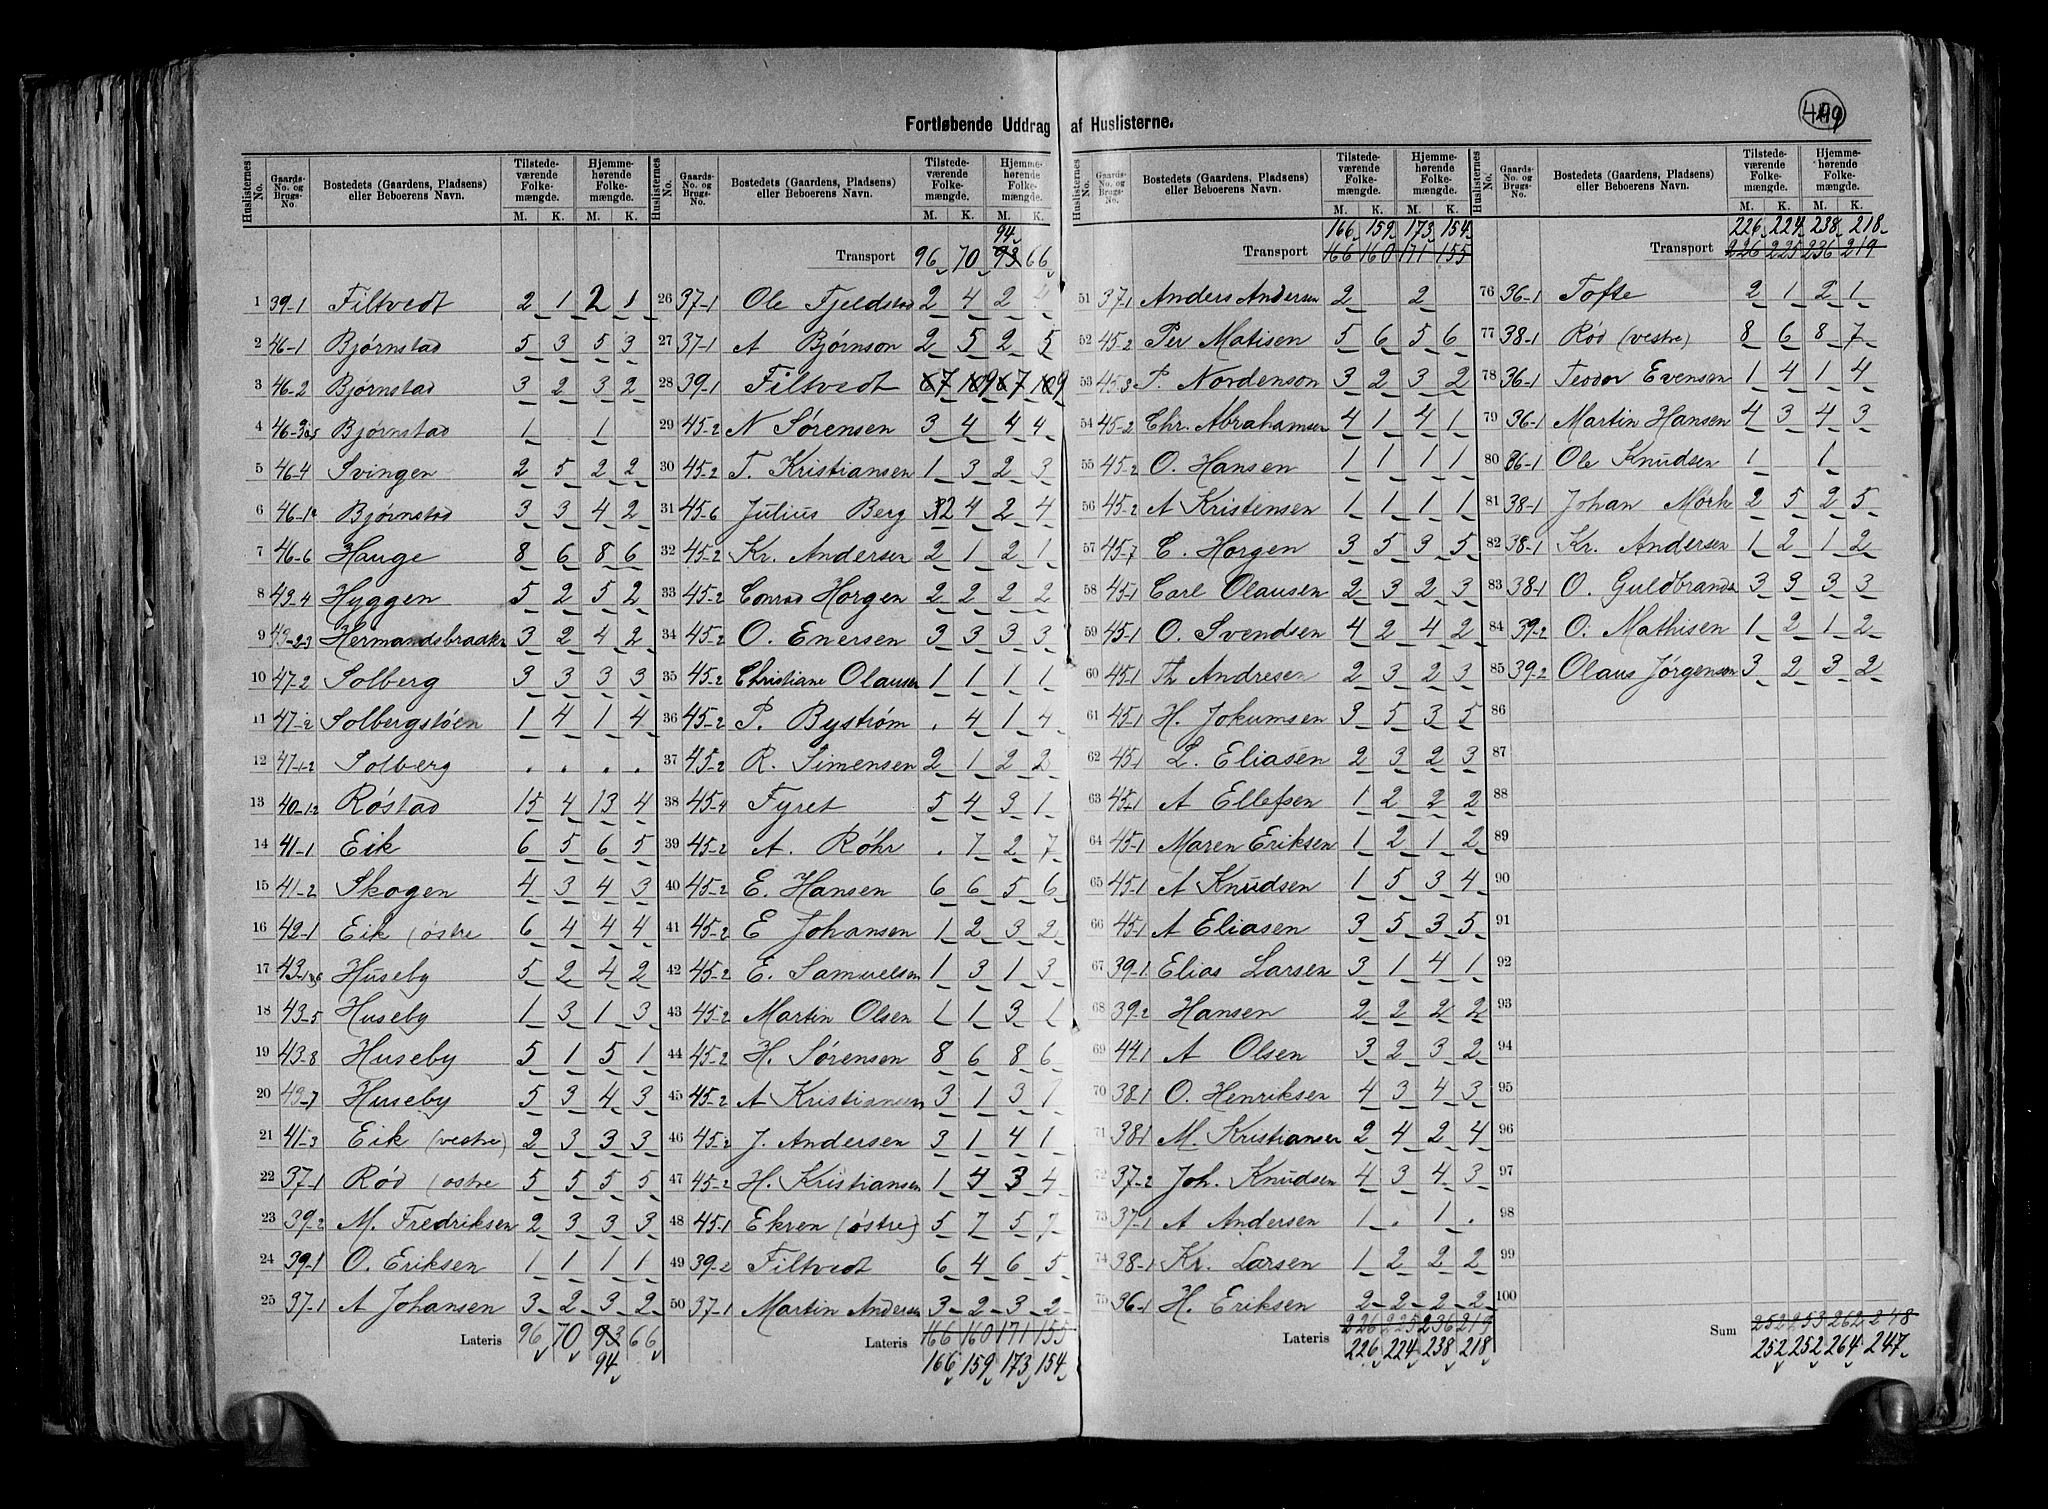 449
Fortløbende Uddrag af Huslisterne.
Huslisternes No. | Gaards-No. og Brugs-No. | Bostedets (Gaardens, Pladsens) eller Beboerens Navn. | Tilstedeværende Folkemængde. M. K. | Hjemmehørende Folkemængde. M. K.
Transport 96 70 94 93 66
Transport 166 159 173 154
166 160 171 155
Transport 226 224 238 218
226 225 236 219
1 39-1 Filtvedt 2 1 2 1
2 46-1 Bjørnstad 5 3 5 3
3 46-2 Bjørnstad 3 2 3 2
4 46-3 Bjørnstad 1 1
5 46-4 Svingen 2 5 2 2
6 46-1 Bjørnstad 3 3 4 2
7 46-6 Hauge 8 6 8 6
8 43-4 Hyggen 5 2 5 2
9 43-2-3 Hermandsbraaten 3 2 4 2
10 47-2 Solberg 3 3 3 3
11 47-2 Solbergstøen 1 4 1 4
12 47-1-2 Solberg . . . .
13 40-12 Røstad 15 4 13 4
14 41-1 Eik 6 5 6 5
15 41-2 Skogen 4 3 4 3
16 42-1 Eik (østre 6 4 4 4
17 43-1 Huseby 5 2 4 2
18 43-5 Huseby 1 3 1 3
19 43-8 Huseby 5 1 5 1
20 43-7 Huseby 5 3 4 3
21 41-3 Eik (vestre) 2 3 3 3
22 37-1 Rød (østre 5 5 5 5
23 39-2 M. Fredriksen 2 3 3 3
24 39-1 O. Eriksen 1 1 1 1
25 37-1 A Johansen 3 2 3 2
Lateris 96 70 93 66
94
26 37-1 Ole Fjeldstad 2 4 2 4
27 37-1 A Bjørnson 2 5 2 5
28 39-1 Filtvedt 7 9 7 9
29 45-2 N Sørensen 3 4 4 4
30 45-2 T. Kristiansen 1 3 2 3
31 45-6 Julius Berg 2 4 2 4
32 45-2 Kr. Andersen 2 1 2 1
33 45-2 Conrad Horgen 2 2 2 2
34 45-2 O. Enersen 3 3 3 3
35 45-2 Christiane Olausen 1 1 1 1
36 45-2 P. Bystrøm . 4 1 4
37 45-2 R. Simensen 2 1 2 2
38 45-4 Fyret 5 4 3 1
39 45-2 A. Røhr . 7 2 7
40 45-2 E. Hansen 6 6 5 6
41 45-2 E Johansen 1 2 3 2
42 45-2 E. Samuelsen 1 3 1 3
43 45-2 Martin Olsen 1 1 3 1
44 45-2 H. Sørensen 8 6 8 6
45 45-2 A Kristiansen 3 1 3 1
46 45-2 J. Andersen 3 1 4 1
47 45-2 H. Kristiansen 1 4 3 4
48 45-1 Ekren (østre) 5 7 5 7
49 39-2 Filtvedt 6 4 6 5
50 37-1 Martin Andersen 3 2 3 2
Lateris 166 160 171 155
166 159 173 154
51 37-1 Anders Andersen 2 2
52 45-2 Per Matisen 5 6 5 6
53 45-3 P. Nordenson 3 2 3 2
54 45-2 Chr. Abrahamsen 4 1 4 1
55 45-2 O. Hansen 1 1 1 1
56 45-2 A Kristensen 1 1 1 1
57 45-7 C. Horgen 3 5 3 5
58 45-1 Carl Olausen 2 3 2 3
59 45-1 O. Svendsen 4 2 4 2
60 45-1 Th Andresen 2 3 2 3
61 45-1 H. Jokumsen 3 5 3 5
62 45-1 L. Eliasen 2 3 2 3
63 45-1 A Ellefsen 1 2 2 2
64 45-1 Maren Eriksen 1 2 1 2
65 45-1 A Knudsen 1 5 3 4
66 45-1 A Eliasen 3 5 3 5
67 39-1 Elias Larsen 3 1 4 1
68 39-2 Hansen 2 2 2 2
69 44-1 A Olsen 3 2 3 2
70 38-1 O. Henriksen 4 3 4 3
71 38-1 M. Kristiansen 2 4 2 4
72 37-2 Joh. Knudsen 4 3 4 3
73 37-1 A Andersen 1 . 1 .
74 38-1 Kr. Larsen 1 2 2 2
75 36-1 H. Eriksen 2 2 2 2
Lateris 226 225 236 219
226 224 238 218
76 36-1 Tofte 2 1 2 1
77 38-1 Rød (vestre) 8 6 8 7
78 36-1 Teodor Evensen 1 4 1 4
79 36-1 Martin Hansen 4 3 4 3
80 36-1 Ole Knudsen 1 1
81 38-1 Johan Mörk 2 5 2 5
82 38-1 Kr. Andersen 1 2 1 2
83 38-1 O. Guldbrands 3 3 3 3
84 39-2 O. Mathisen 1 2 1 2
85 39-2 Olaus Jørgensen 3 2 3 2
86
87
88
89
90
91
92
93
94
95
96
97
98
99
100
Sum 252 253 262 248
252 252 264 247